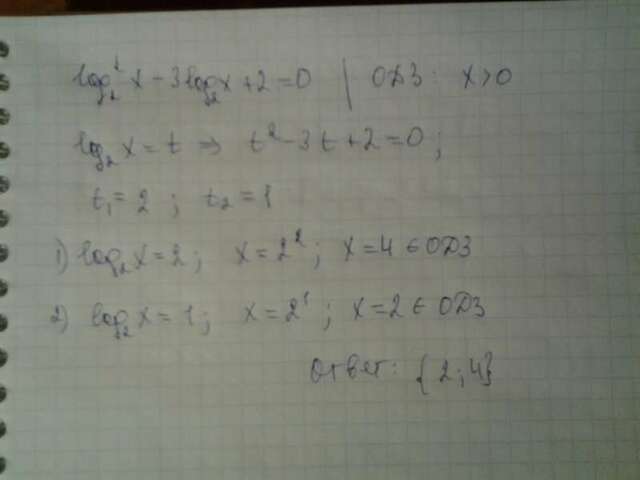 log₂² x - 3 log₂ x + 2 = 0 | ОДЗ: x > 0
log₂ x = t ⇒ t² - 3t + 2 = 0;
t₁ = 2; t₂ = 1
1) log₂ x = 2; x = 2²; x = 4 ∈ ОДЗ
2) log₂ x = 1; x = 2¹; x = 2 ∈ ОДЗ
Ответ: {2; 4}